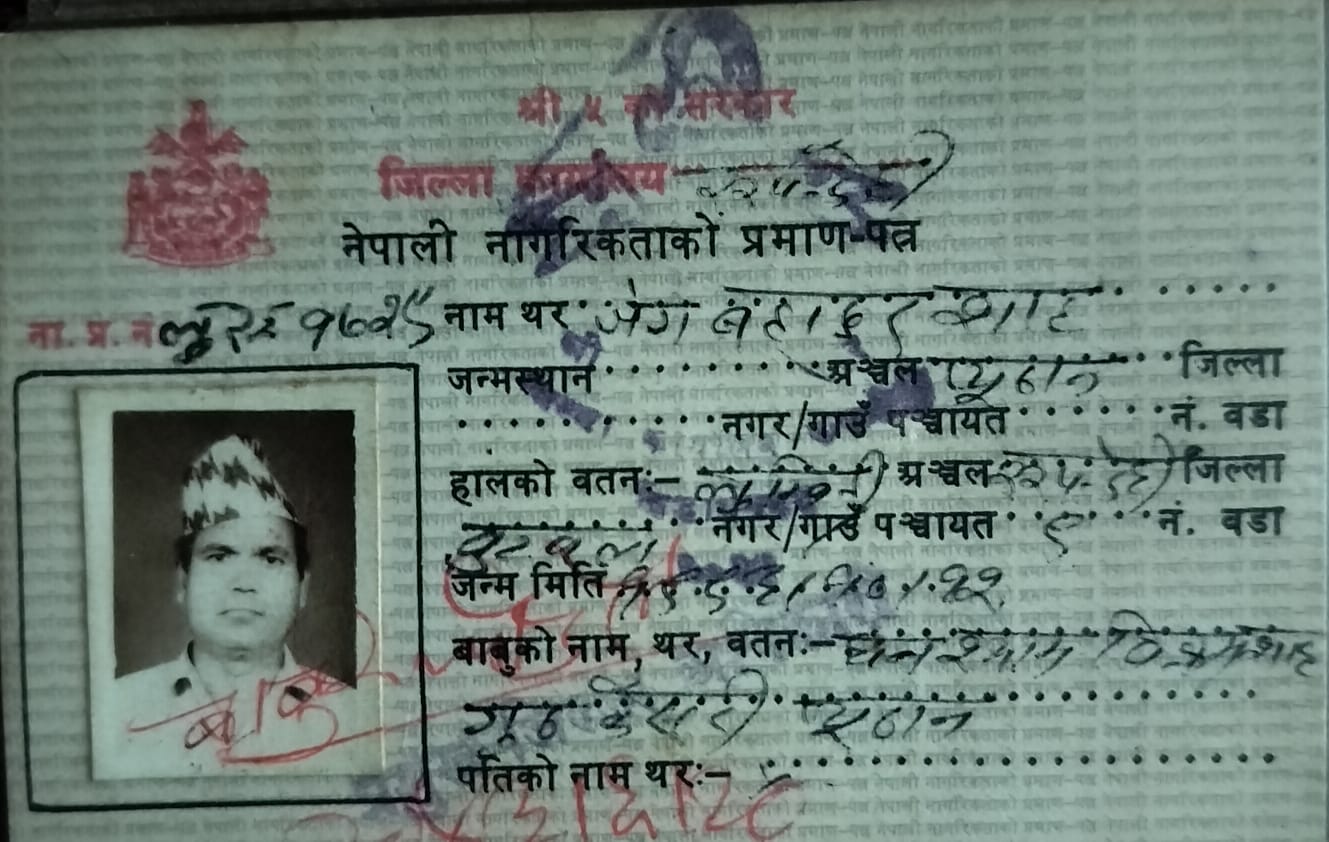 श्री ५ को सरकार
जिल्ला कार्यालय रुपन्देही
नेपाली नागरिकताको प्रमाण-पत्र
ना. प्र. नं नाम थर: जंग बहादुर शाह
जन्मस्थान अञ्चल प्यूठान जिल्ला
नगर/गाउँ पञ्चायत नं. वडा
हालको वतन:- लुम्बिनी अञ्चल रुपन्देही जिल्ला
बुटवल नगर/गाउँ पञ्चायत ९ नं. वडा
जन्म मिति
बाबुको नाम, थर, वतन:- घनश्याम विक्रम शाह
प्यूठान
पतिको नाम थर:- ×